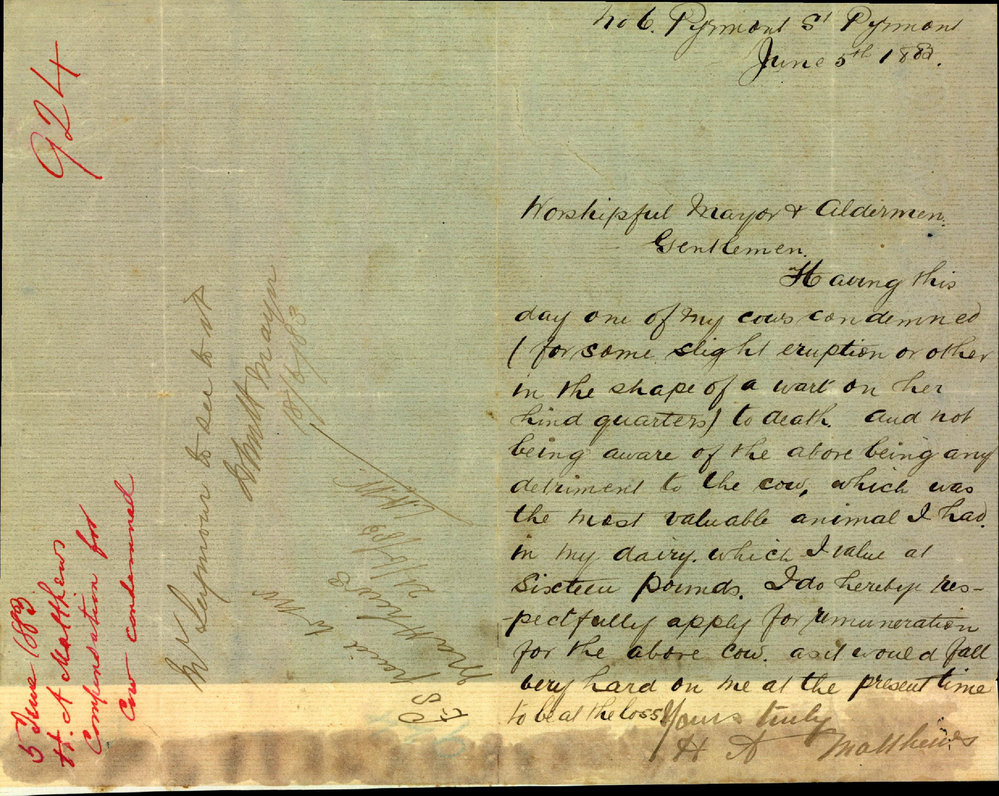 No 6. Pyrmont St Pyrmont
June 5th 1883.
Worshipful Mayor & Aldermen.
Gentlemen.
Having this
day one of my cows condemned
(for some slight eruption or other
in the shape of a wart on her
hind quarters) to death. and not
being aware of the above being any
detriment to the cow, which was
the most valuable animal I had.
in my dairy. which I value at
Sixteen Pounds. I do hereby res-
pectfully apply for remuneration
for the above cow. as it would fall
very hard on me at the present time
to be at the loss Yours truly
H A Matthews
924
5 June 1883
H. A Matthews
Compensation for
Cow condemned
Mr Seymour to see to it
Mayor
18/6/83